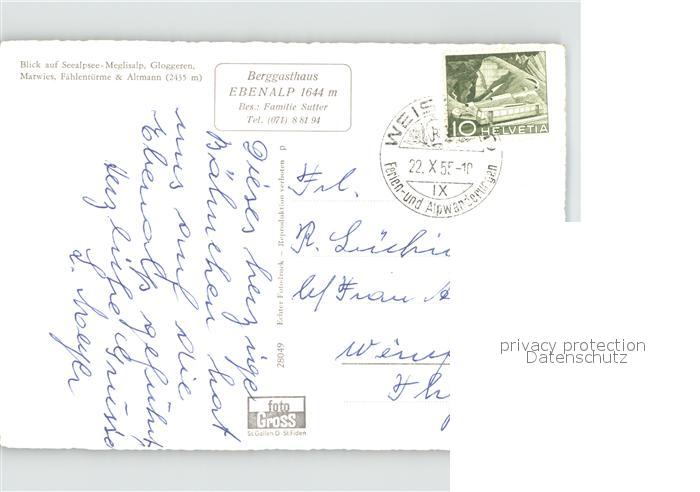 Blick auf Seealpsee-Meglisalp, Gloggeren,
Marwies, Fählentürme & Altmann (2435 m)
Berggasthaus
EBENALP 1644 m
Bes.: Familie Sutter
Tel. (071) 8 81 94
10 HELVETIA
WEIS
22. X 55-10
IX
Ferien- und Alpwanderungen
Dieses herzige
Bähnchen hat
uns auf die
Ebenalp geführt.
Herzliche Grüsse
L. Meyer
28049 Echter Fotodruck - Reproduktion verboten P
Frl.
R.
b/ Frau
foto
Gross
St.Gallen O - St.Fiden
privacy protection
Datenschutz